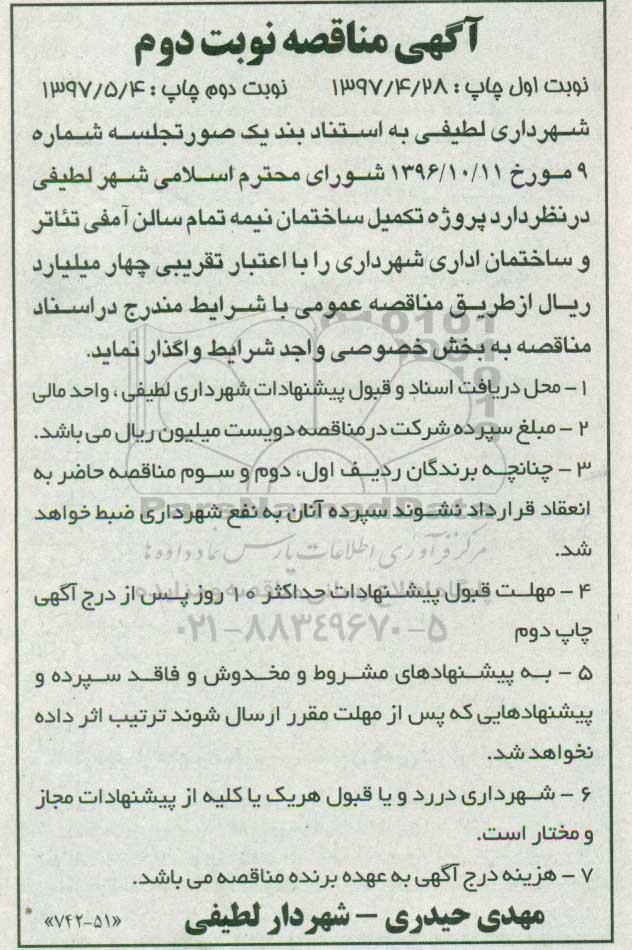 آگهی مناقصه نوبت دوم
نوبت اول چاپ: ۱۳۹۷/۴/۲۸ نوبت دوم چاپ: ۱۳۹۷/۵/۴
شهرداری لطیفی به استناد بند یک صورتجلسه شماره
۹ مورخ ۱۳۹۶/۱۰/۱۱ شورای محترم اسلامی شهر لطیفی
درنظردارد پروژه تکمیل ساختمان نیمه تمام سالن آمفی تئاتر
و ساختمان اداری شهرداری را با اعتبار تقریبی چهار میلیارد
ریال ازطریق مناقصه عمومی با شرایط مندرج دراسناد
مناقصه به بخش خصوصی واجد شرایط واگذار نماید.
۱- محل دریافت اسناد و قبول پیشنهادات شهرداری لطیفی، واحد مالی
۲- مبلغ سپرده شرکت درمناقصه دویست میلیون ریال می باشد.
۳- چنانچه برندگان ردیف اول، دوم و سوم مناقصه حاضر به
انعقاد قرارداد نشوند سپرده آنان به نفع شهرداری ضبط خواهد
شد.
۴- مهلت قبول پیشنهادات حداکثر ۱۰ روز پس از درج آگهی
چاپ دوم
۵- به پیشنهادهای مشروط و مخدوش و فاقد سپرده و
پیشنهادهایی که پس از مهلت مقرر ارسال شوند ترتیب اثر داده
نخواهد شد.
۶- شهرداری دررد و یا قبول هریک یا کلیه از پیشنهادات مجاز
و مختار است.
۷- هزینه درج آگهی به عهده برنده مناقصه می باشد.
مهدی حیدری - شهردار لطیفی
«۷۴۲-۵۱»
ParsNamadData
مرکز فرآوری اطلاعات پارس نماد داده ها
۰۲۱-۸۸۳۴۹۶۷۰-۵